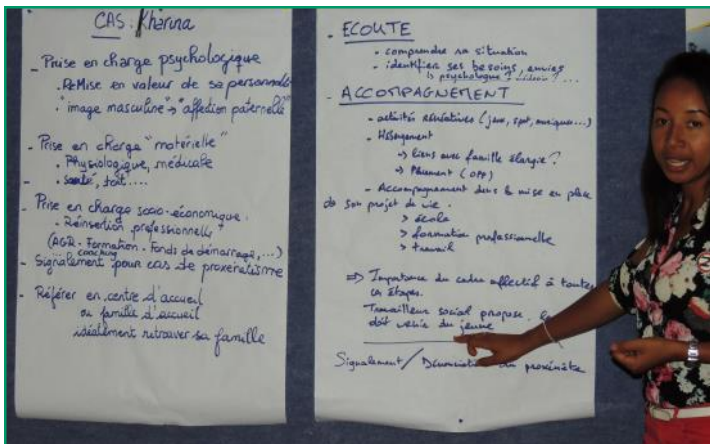 CAS : Kharina
- Prise en charge psychologique
. ReMise en valeur de sa personnalité
. "image masculine" → "affection paternelle"
- Prise en charge "matérielle"
. Physiologique, médicale
. santé, toit....
- Prise en charge socio-économique.
- Réinsertion professionnelle
(AGR - Formation - Fonds de démarrage, ...)
coaching
- Signalement pour cas de proxénétisme
- Référer en centre d'accueil
ou famille d'accueil
idéalement retrouver sa famille
- ECOUTE
- comprendre sa situation
- identifier ses besoins, envies
↳ psychologue ? médecin ? ...
- ACCOMPAGNEMENT
- activités récréatives (jeux, sport, musiques...)
- Hébergement
→ liens avec famille élargie ?
→ Placement (OPP)
- Accompagnement dans la mise en place
de son projet de vie.
> école
> formation professionnelle
> travail
⇒ Importance du cadre affectif à toutes
ces étapes.
Travailleur social propose, le
doit venir du jeune
Signalement / Dénonciation du proxénète